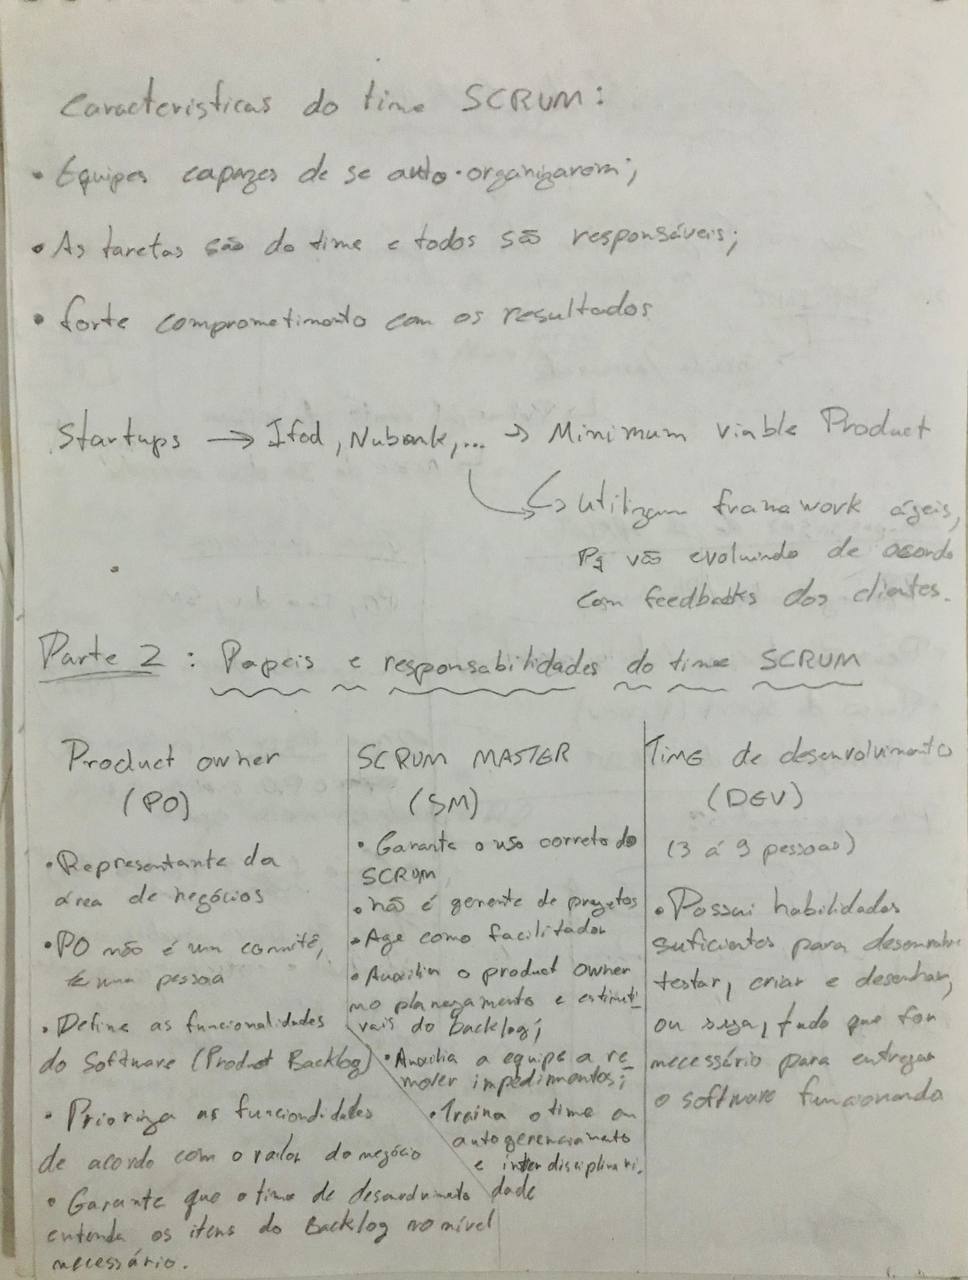 Características do time SCRUM:
• Equipes capazes de se auto-organizarem;
• As tarefas são do time e todos são responsáveis;
• forte comprometimento com os resultados
Startups → Ifod, Nubank,... → Minimum viable Product
↳ Utilizam framework ágeis,
Pq vão evoluindo de acordo
com feedbacks dos clientes.
Parte 2 : Papeis e responsabilidades do time SCRUM
Product owner
(PO)
• Representante da
área de negócios
• PO não é um comitê,
é uma pessoa
• Define as funcionalidades
do Software (Product Backlog)
• Prioriza as funcionalidades
de acordo com o valor do negócio
• Garante que o time de desenvolvimento
entenda os itens do Backlog no nível
necessário.
SCRUM MASTER
(SM)
• Garante o uso correto do
SCRUM
• não é gerente de projetos
• Age como facilitador
• Auxilia o product owner
no planejamento e estimati-
vais do backlog;
• Auxilia a equipe a re-
mover impedimentos;
• Treina o time em
autogerenciamento
e interdisciplinari-
dade
Time de desenvolvimento
(DEV)
(3 á 9 pessoas)
• Possui habilidades
suficientes para desenvolver
testar, criar e desenhar,
ou seja, tudo que for
necessário para entregar
o software funcionando